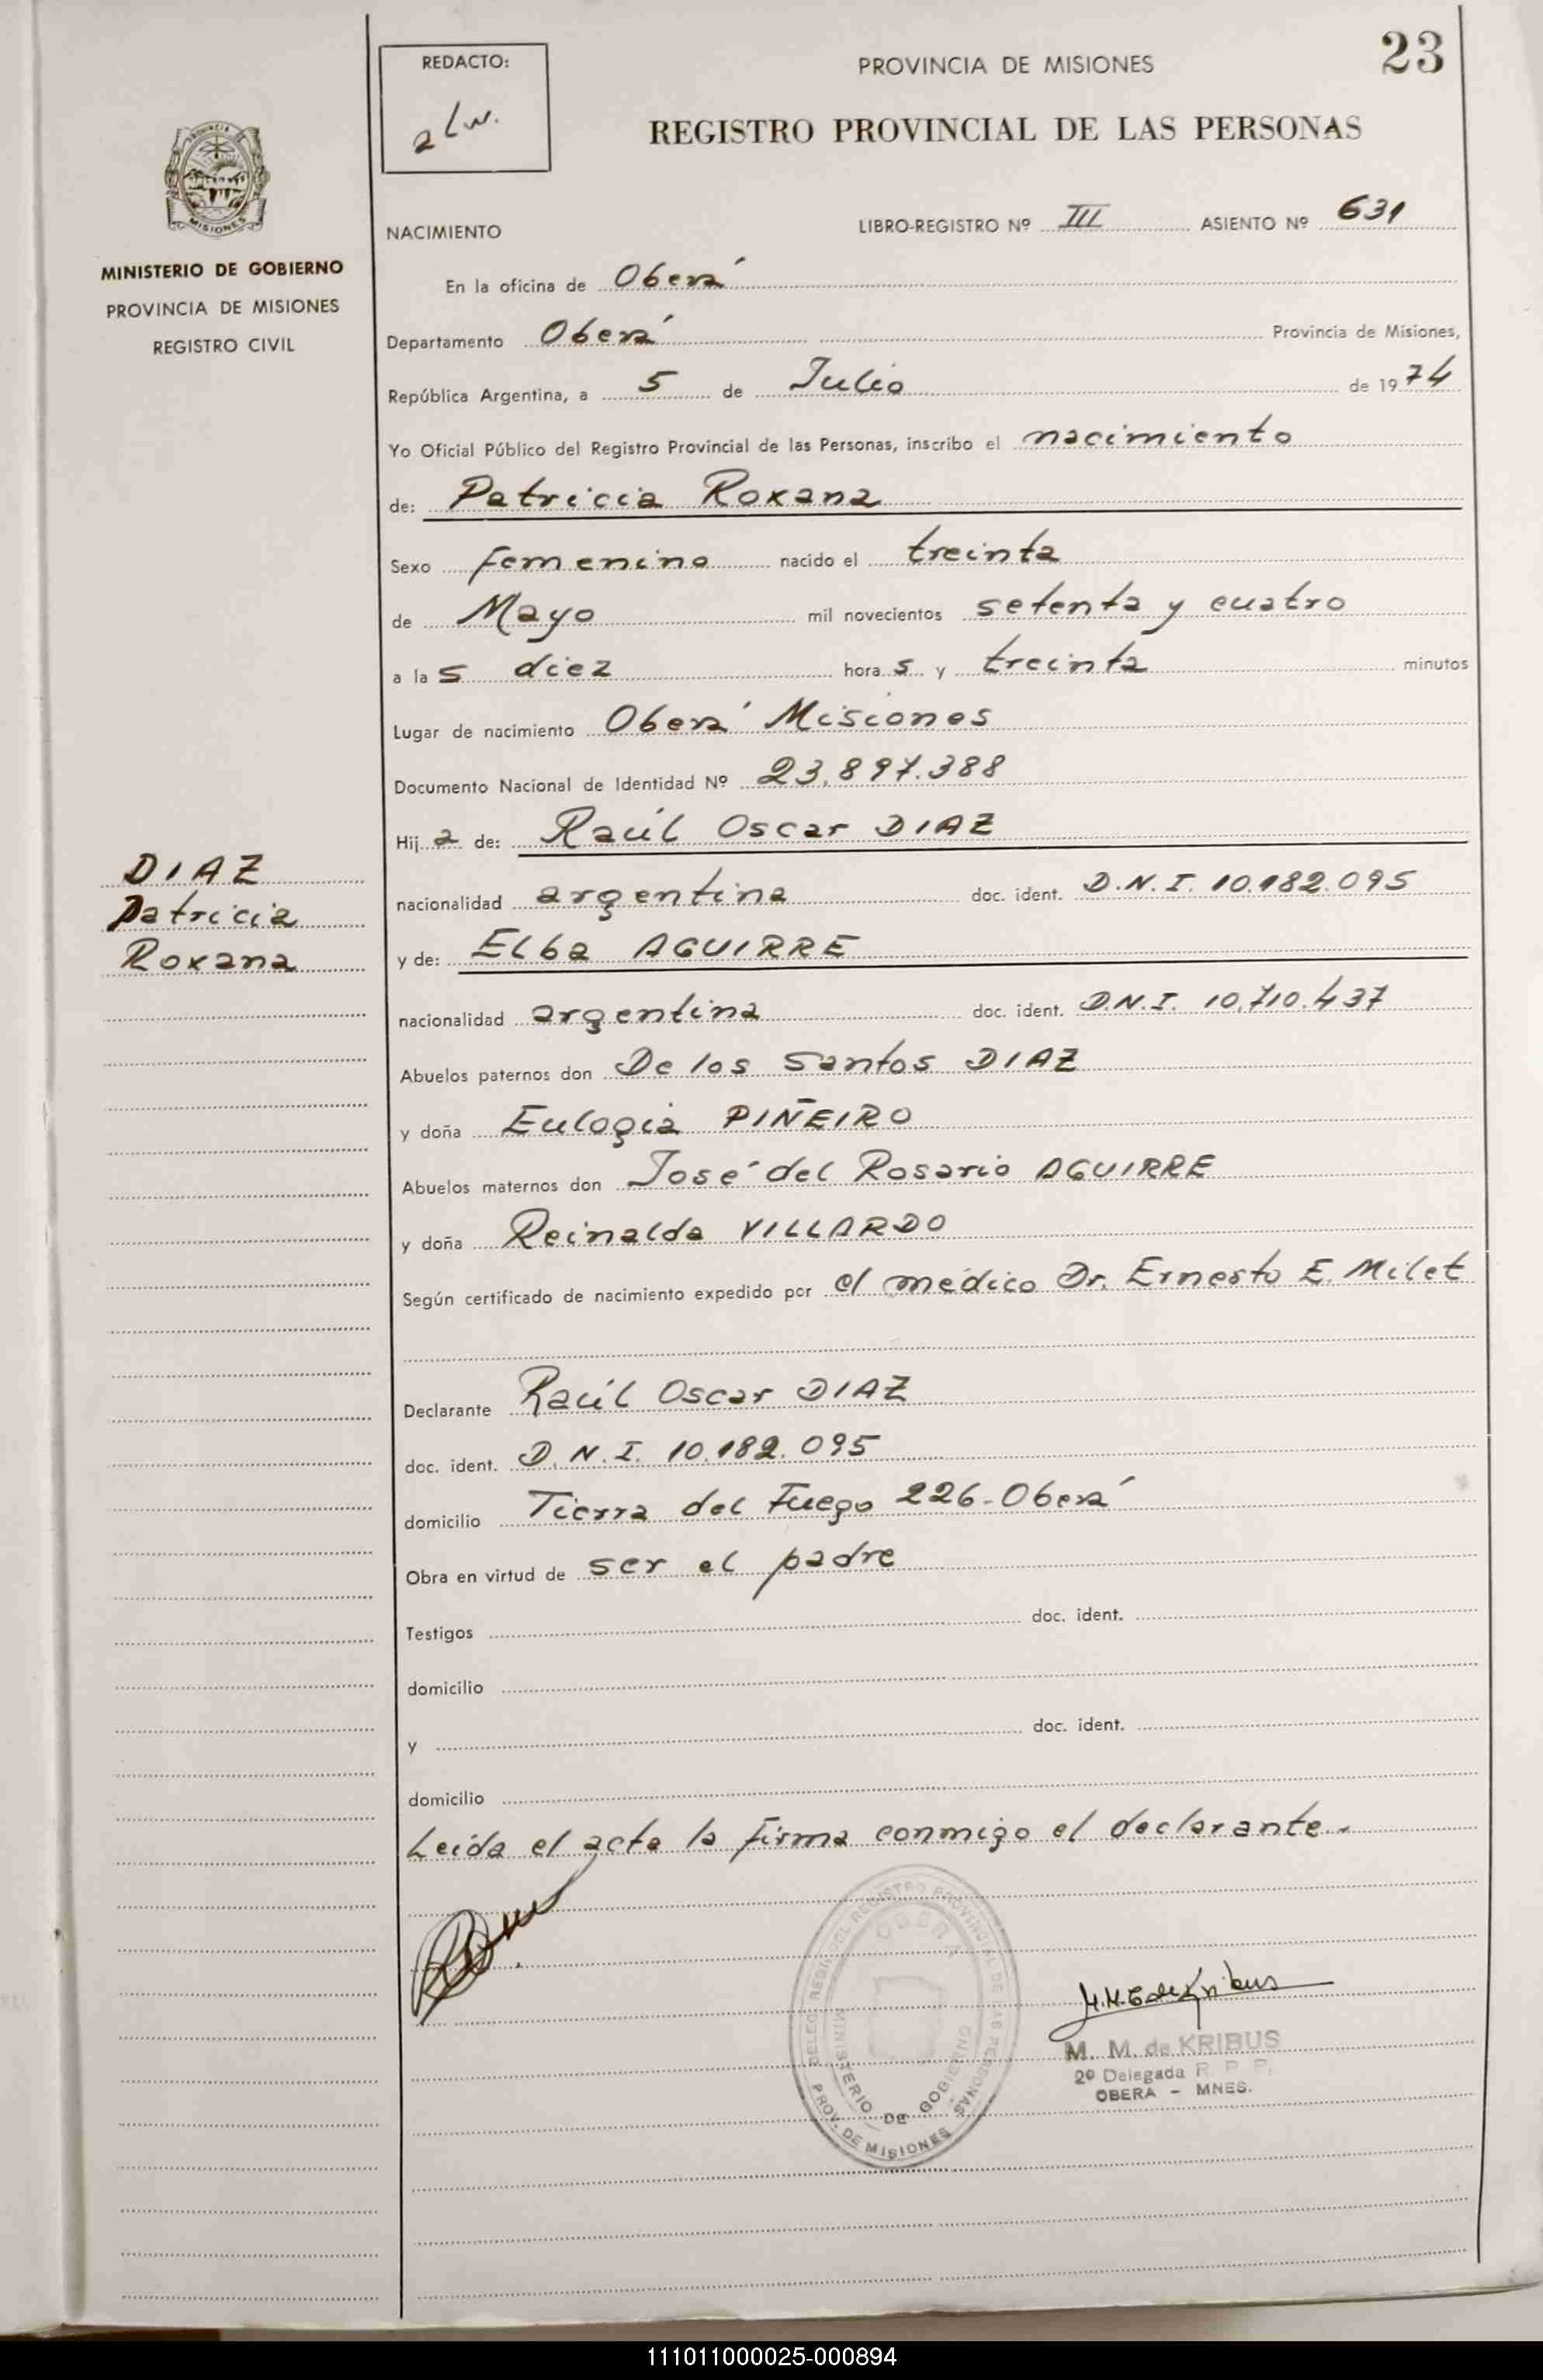 23
REDACTO:
PROVINCIA DE MISIONES
REGISTRO PROVINCIAL DE LAS PERSONAS
MINISTERIO DE GOBIERNO
PROVINCIA DE MISIONES
REGISTRO CIVIL
NACIMIENTO LIBRO-REGISTRO Nº III ASIENTO Nº 631
En la oficina de Oberá
Departamento Oberá Provincia de Misiones,
República Argentina, a 5 de Julio de 1974
Yo Oficial Público del Registro Provincial de las Personas, inscribo el nacimiento
de: Patricia Roxana
Sexo Femenino nacido el treinta
de Mayo mil novecientos setenta y cuatro
a las diez horas y treinta minutos
Lugar de nacimiento Oberá Misiones
Documento Nacional de Identidad Nº 23.897.388
Hija de: Raúl Oscar DIAZ
nacionalidad argentina doc. ident. D.N.I. 10.182.095
y de: Elba AGUIRRE
nacionalidad argentina doc. ident. D.N.I. 10.710.437
DIAZ
Patricia
Roxana
Abuelos paternos don De los Santos DIAZ
y doña Eulogia PIÑEIRO
Abuelos maternos don José del Rosario AGUIRRE
y doña Reinalda VILLARDO
Según certificado de nacimiento expedido por el médico Dr. Ernesto E. Milet
Declarante Raúl Oscar DIAZ
doc. ident. D.N.I. 10.182.095
domicilio Tierra del Fuego 226-Oberá
Obra en virtud de ser el padre
Testigos doc. ident.
domicilio
y doc. ident.
domicilio
Leída el acta la firma conmigo el declarante.
OBERA
MINISTERIO DE GOBIERNO
PROV. DE MISIONES
M. M. de KRIBUS
2º Delegada R. P. P.
OBERA - MNES.
111011000025-000894